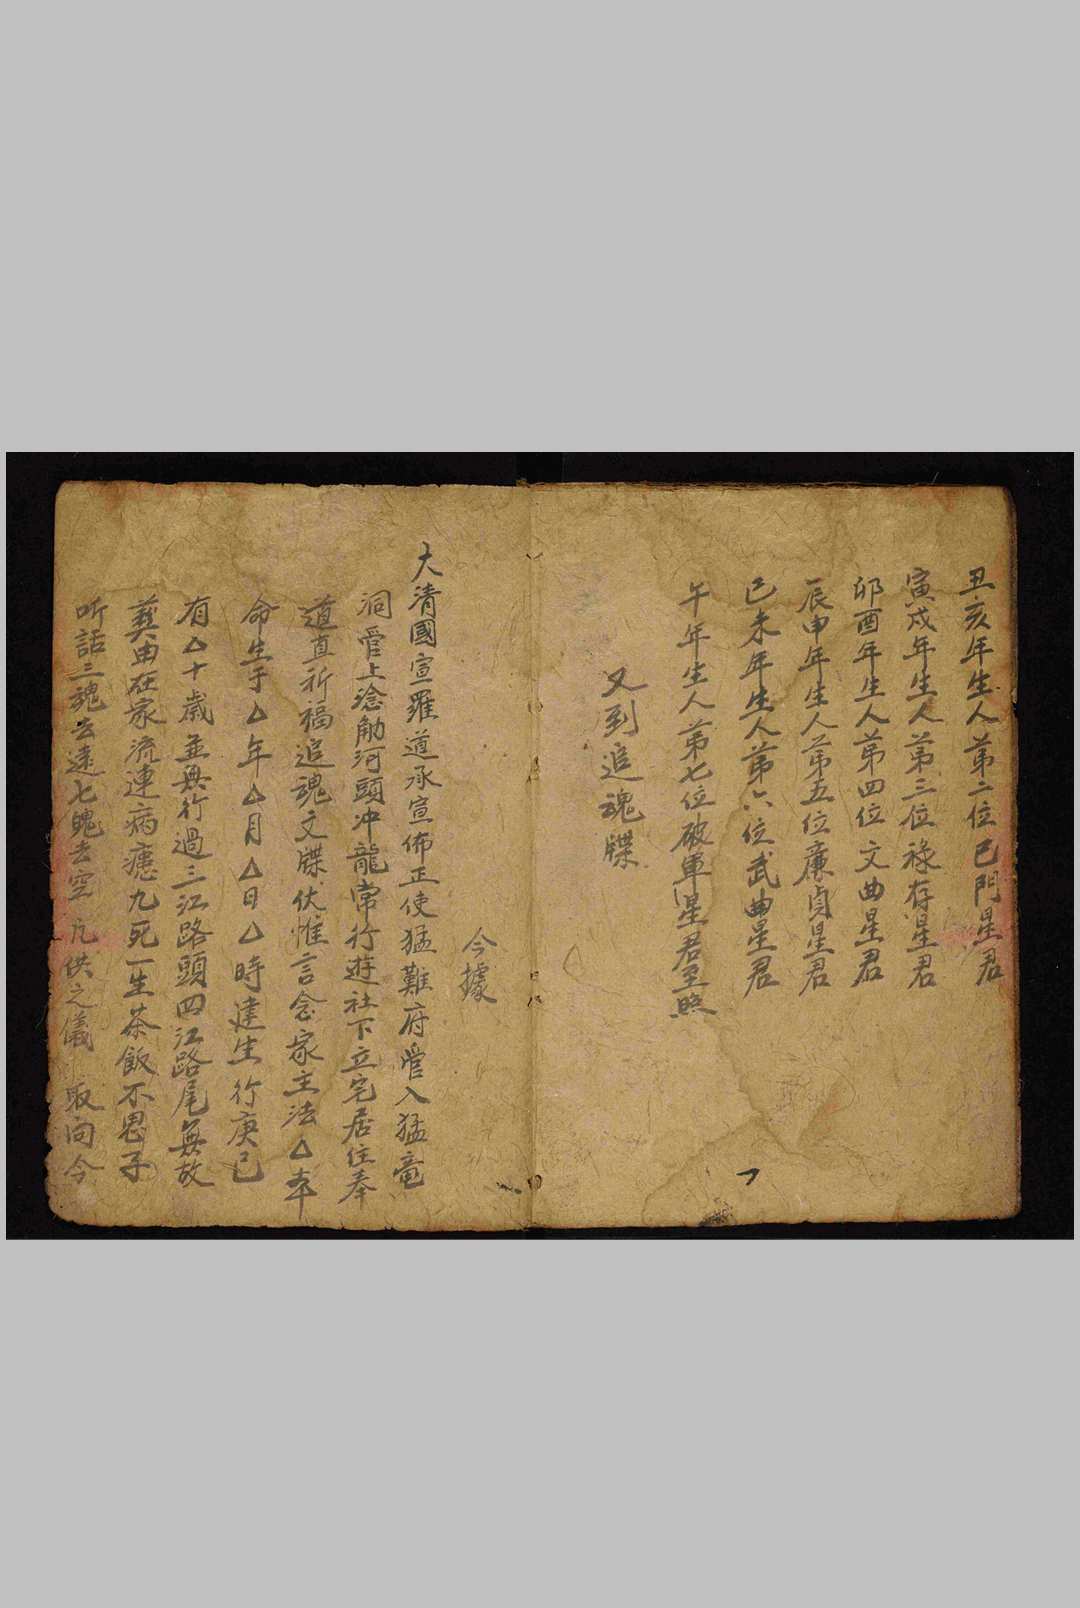 丑亥年生人苐二位巳門星君
寅戍年生人苐三位祿存星君
卯酉年生人苐四位文曲星君
辰申年生人苐五位廉貞星君
巳未年生人苐六位武曲星君
午年生人苐七位破軍星君至照
又到追魂牒
今據
大清國宣羅道承宣佈正使猛難府管入猛竜
洞管上淰觔河頭冲龍常行遊社下立宅居住奉
道直祈福追魂文牒伏惟言念家主法△本
命生于△年△月△日△時建生行庚已
有△十歲並無行過三江路頭四江路尾無故
美由在家流連病瘧九死一生茶飯不思子
听話三魂去遠七魄去空凡供之儀取向今